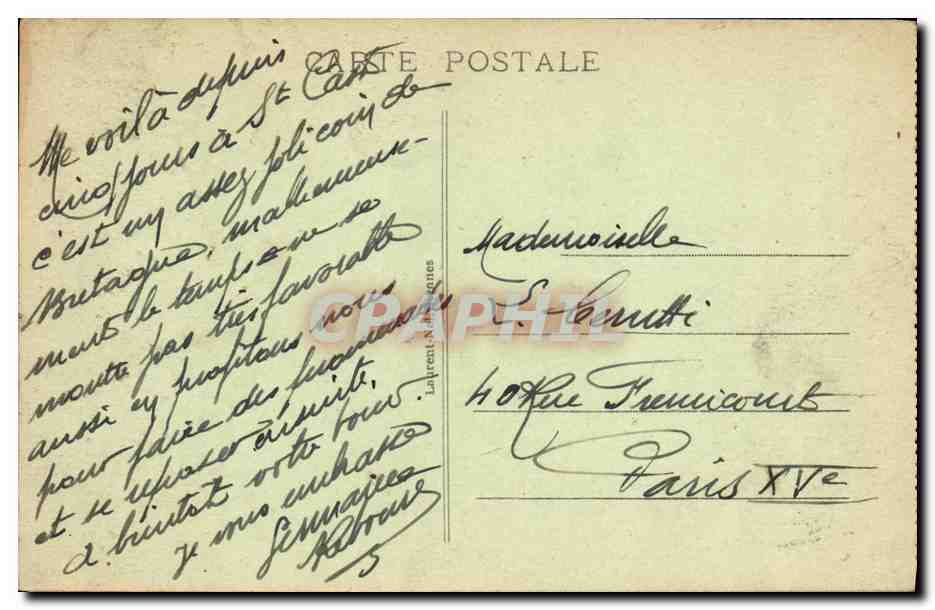 CARTE POSTALE
Me voilà depuis
cinq jours à St Cast
c'est un assez joli coin de
Bretagne, malheureuse-
ment le temps ne se
montre pas très favorable
aussi en profitons nous
pour faire des promenades
et se reposer ensuite.
à bientôt votre tour.
je vous embrasse
Germaine
Laurent-Nel
Rennes
CPAPHIL
Mademoiselle
S. Cerutti
40 Rue Fremicourt
Paris XVe